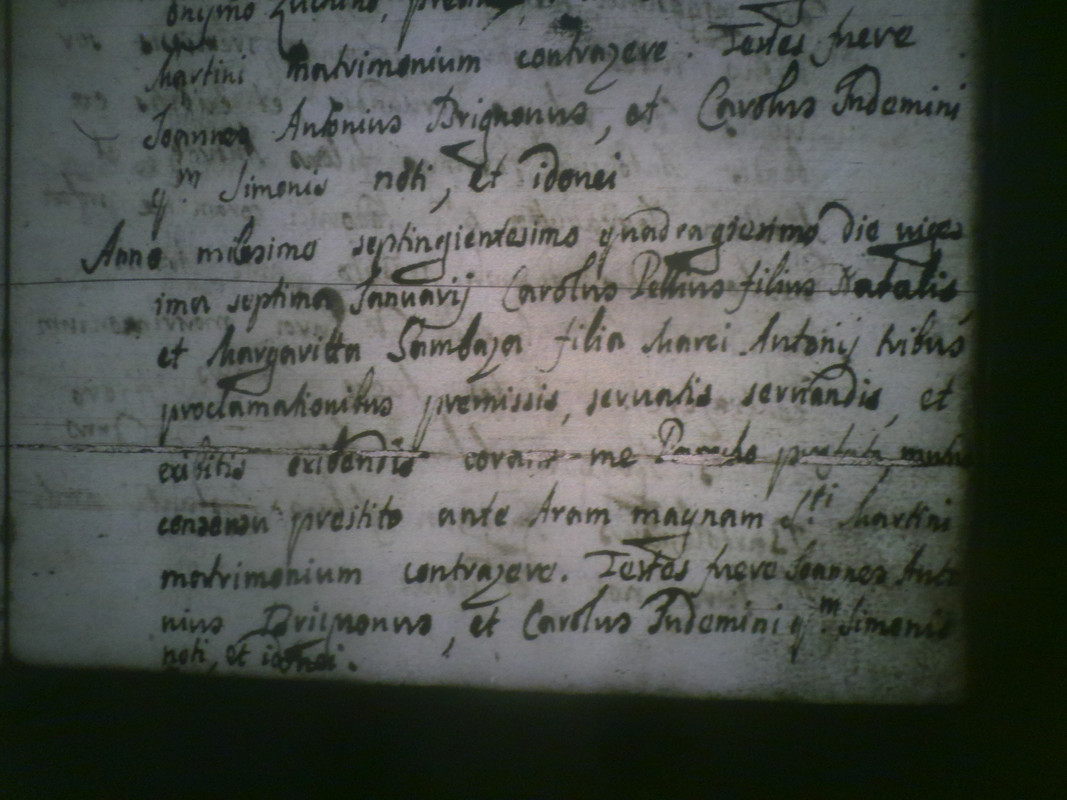 Martini matrimonium contraxere. Testes fuere
Joannes Antonius Brignonus, et Carolus Indemini
q.m Simonis noti, et idonei
Anno milesimo septingientesimo quadragiesimo die viges
ima septima Januarij Carolus Pellius filius Natalis
et Margaritta Sambaza filia Marci Antonij tribus
proclamationibus premissis, servatis servandis, et
exibitis exibendis coram me Parocho mutuo
consensu prestito ante Aram magnam S.ti Martini
matrimonium contraxere. Testes fuere Joannes Anto
nius Brignonus, et Carolus Indemini q.m Simonis
noti, et idonei.